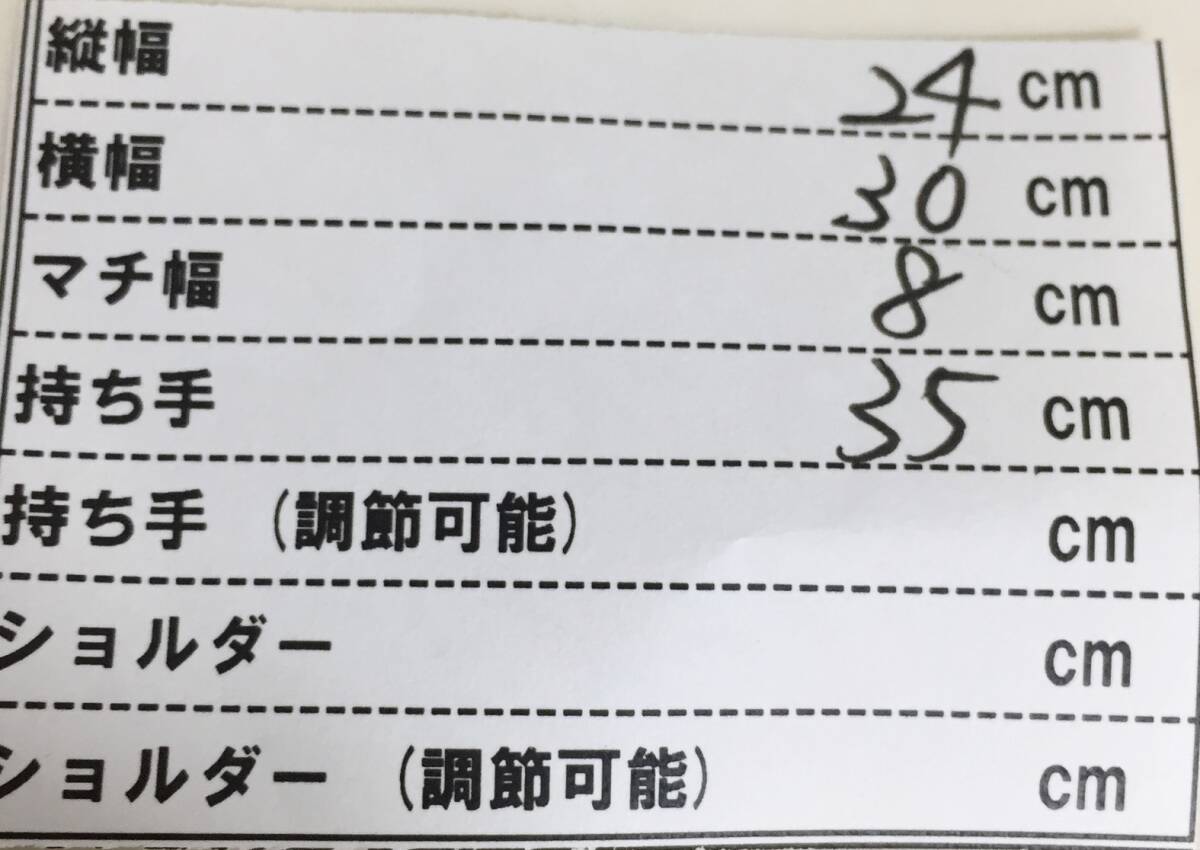 縦幅 24 cm
横幅 30 cm
マチ幅 8 cm
持ち手 35 cm
持ち手 (調節可能) cm
ショルダー cm
ショルダー (調節可能) cm